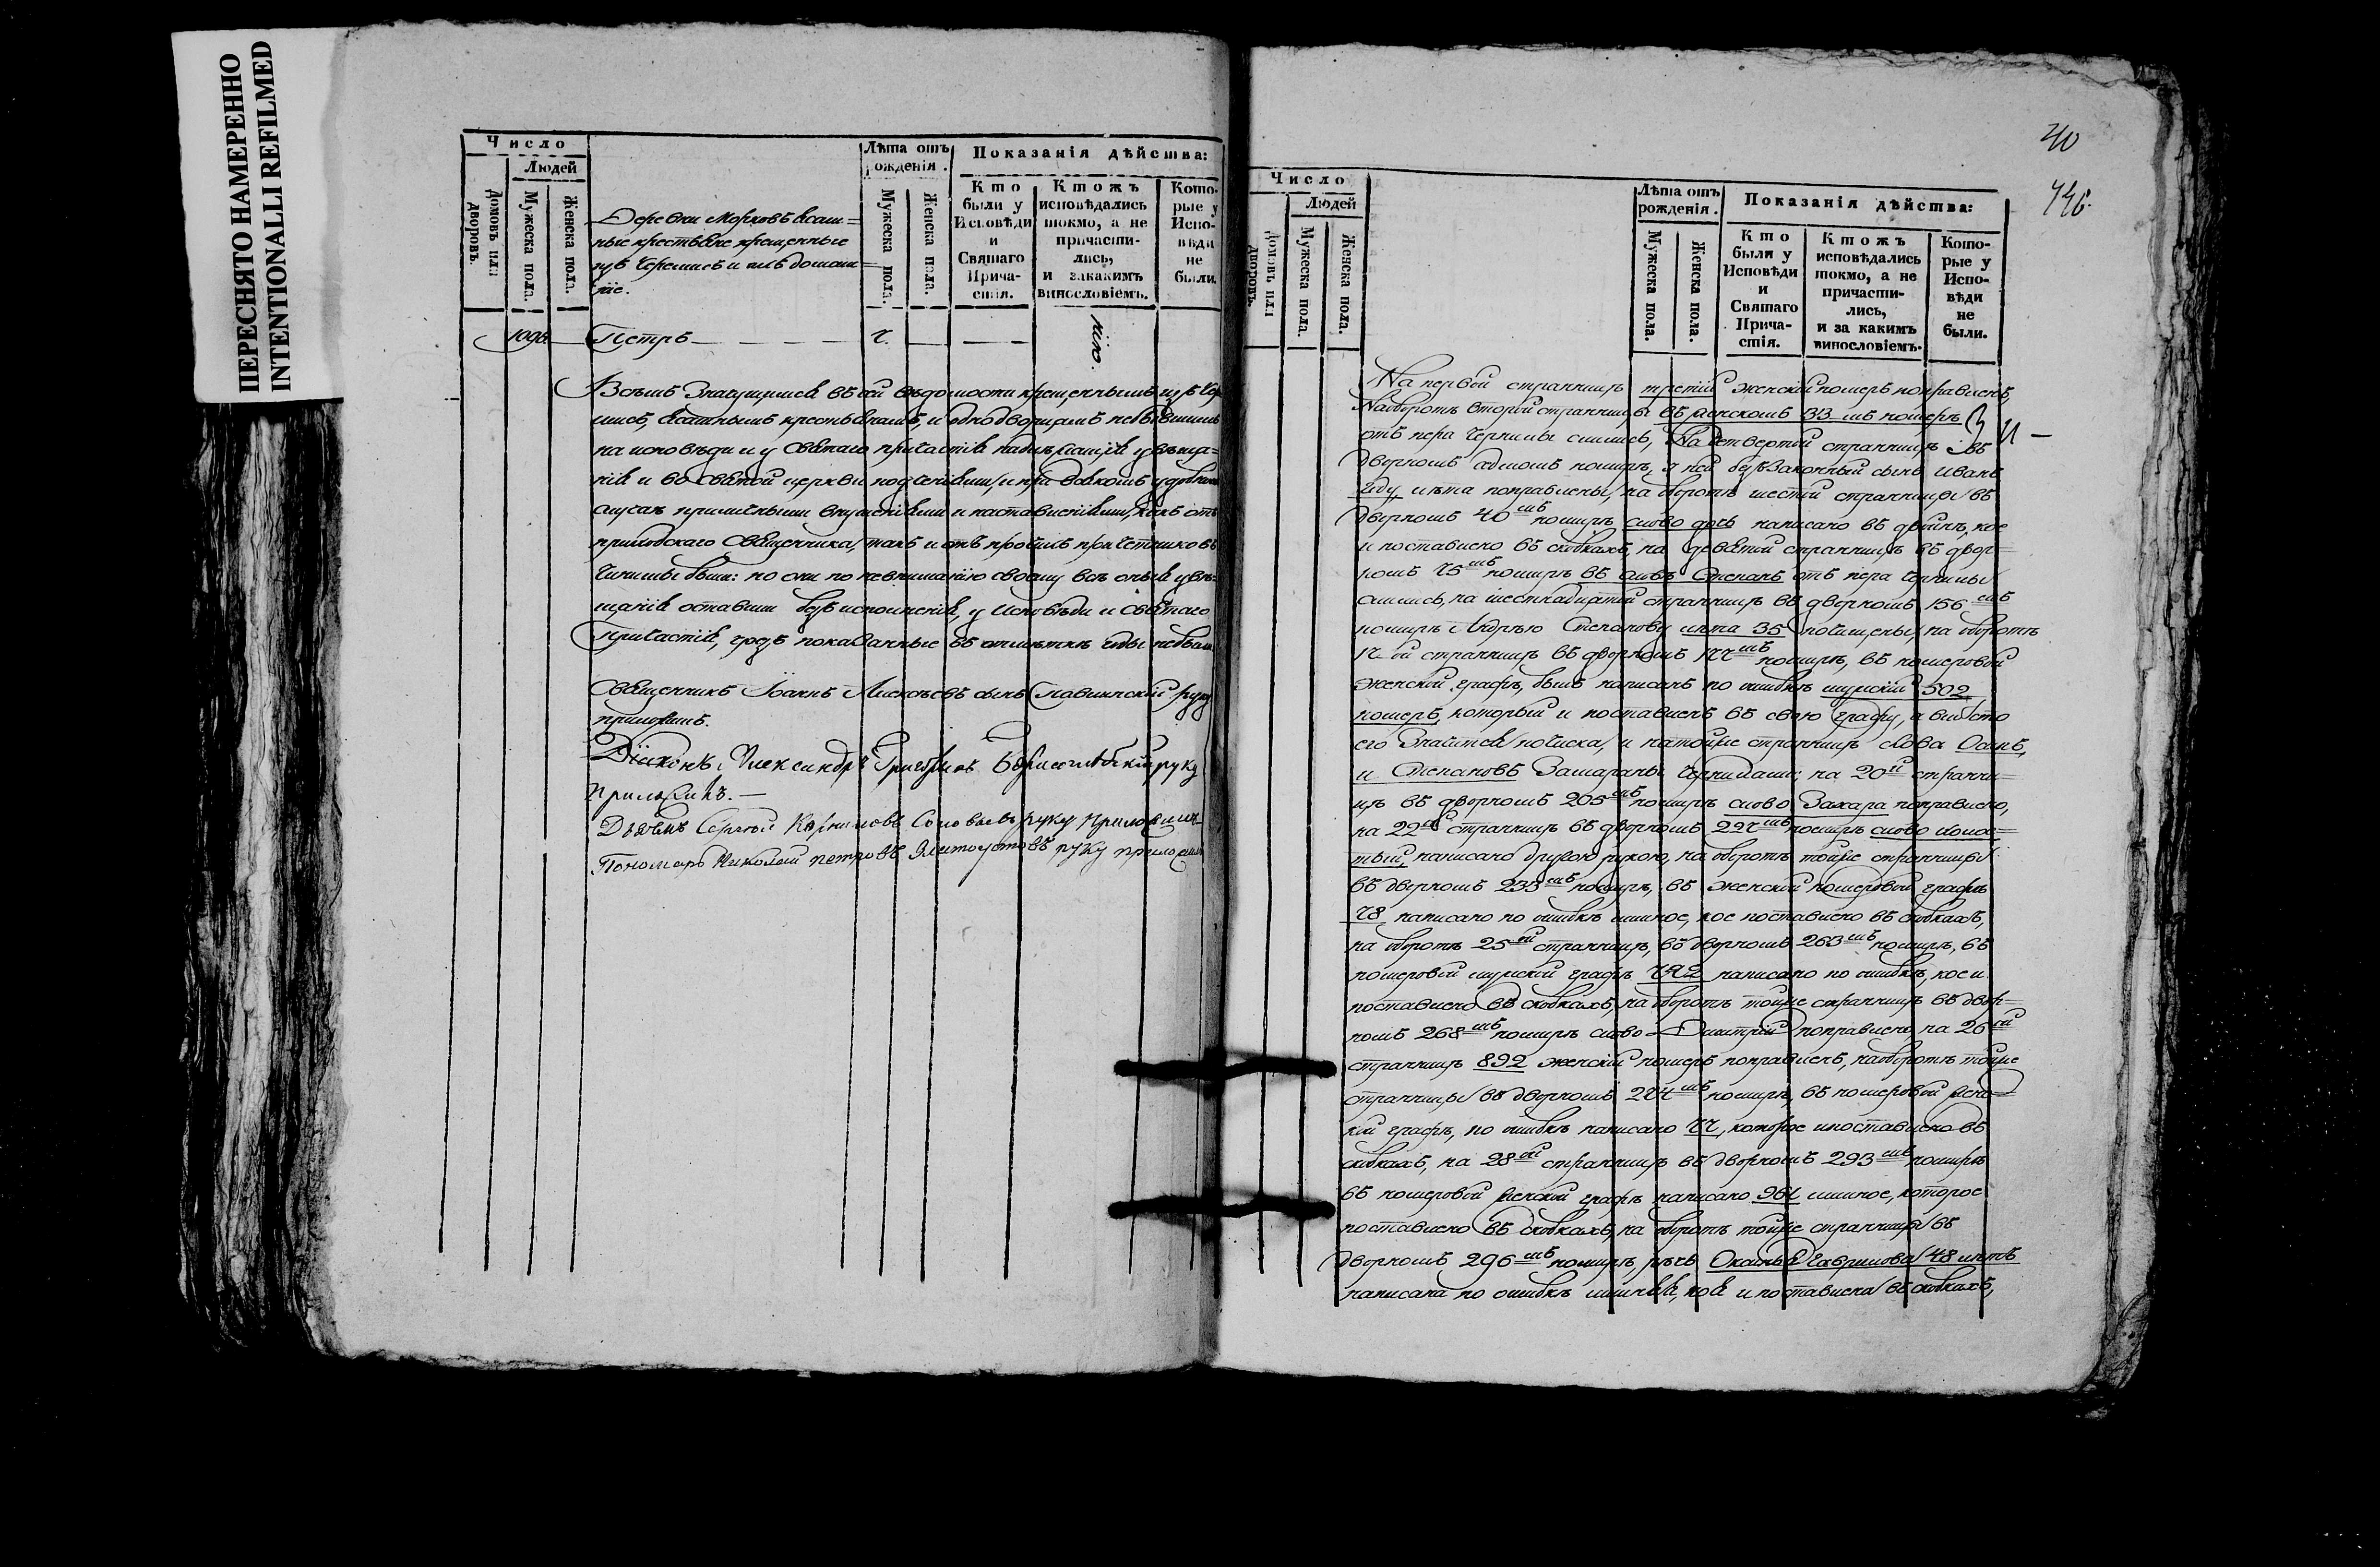 ПЕРЕСНЯТО НАМЕРЕННО
INTENTIONALLI REFILMED
Число
Людей
Домовъ или дворовъ.
Мужеска пола.
Женска пола.
Деревни Морковъ ясаш=
ные крестьяне крещенные
изъ Черемисъ и ихъ домаш=
ніе.
Лѣта отъ
рожденія.
Мужеска пола.
Женска пола.
Показанія дѣйства:
Кто
были у
Исповѣди
и
Святаго
Прича-
стія.
Ктожъ
исповѣдались
токмо, а не
причасти-
лись,
и закакимъ
винословіемъ.
Кото-
рые у
Испо-
вѣди
не
были.
1096. Петръ
нію.
Всѣмъ значущимся въ сей вѣдомости крещеннымъ изъ Чере
мисъ, ясашнымъ крестьянамъ, и однодворцамъ небывшимъ
на исповѣди и у Святаго причастія надлежащія увѣща=
нія и во Святой церкви поученіями, и при всякомъ удобномъ
случаѣ приличными внушеніями и наставленіями, какъ отъ
приходскаго Священника, такъ и отъ прочихъ причетниковъ
чинимы были: но они по невниманію своему всѣ оныя увѣ=
щанія оставили безъ исполненія, у Исповѣди и Святаго
Причастія, чрезъ показанные въ отмѣткѣ годы небыли
Священникъ Іоаннъ Алексѣевъ сынъ Славинскій руку
приложилъ.
Діаконъ Александръ Григорьевъ Борисоглѣбскій руку
приложилъ.—
Дьячекъ Сергѣй Корниловъ Соловьевъ руку приложилъ
Пономарь Николай Петровъ Златоустовъ руку приложилъ
40
446.
Число
Людей
Домовъ или дворовъ.
Мужеска пола.
Женска пола.
Лѣта отъ
рожденія.
Мужеска пола.
Женска пола.
Показанія дѣйства:
Кто
были у
Исповѣди
и
Святаго
Прича-
стія.
Ктожъ
исповѣдались
токмо, а не
причасти-
лись,
и за какимъ
винословіемъ.
Кото-
рые у
Испо-
вѣди
не
были.
На первой странницѣ третій женскій номеръ поправленъ,
На оборотѣ второй странницы въ женскомъ 33мъ номерѣ
отъ пера чернилы слились, На четвертой странницѣ въ
дворномъ номерѣ, у ней беззаконный сынъ Иванъ
лѣта поправлены, на оборотѣ шестой странницы въ
дворномъ 40мъ номерѣ слово дочь написано въ двойнѣ, кое
и поставлено въ скобкахъ, на девятой странницѣ въ двор=
номъ 75мъ номерѣ въ Степанъ отъ пера чернилы
слились, на шестнадцатой странницѣ въ дворномъ 156мъ
номерѣ Андрею Степанову лѣта 35 почищены, на оборотѣ
17ой странницѣ въ дворномъ 177мъ номерѣ, въ номеровой
женской графѣ, былъ написанъ по ошибкѣ мужскій 502
номеръ, который и поставленъ въ свою графу, а вмѣсто
его значится почиска, и натойже странницѣ слова Осипъ,
и Степановъ замараны чернилами; на 20й странни=
цѣ въ дворномъ 205мъ номерѣ слово Захара поправлено,
на 22й странницѣ въ дворномъ 227мъ номерѣ слово
написано другою рукою, на оборотѣ тойже странницы
въ дворномъ 233мъ номерѣ, въ женской номеровой графѣ
78 написано по ошибкѣ лишное, кое поставлено въ скобкахъ,
на оборотѣ 25ой странницы, въ дворномъ 263мъ номерѣ, въ
номеровой мужской графѣ 792 написано по ошибкѣ, кое и
поставлено въ скобкахъ, на оборотѣ тойже странницѣ въ двор=
номъ 268мъ номерѣ слово Дмитрій поправлено, на 26ой
странницѣ 892 женскій номеръ поправленъ, наоборотѣ тойже
странницы въ дворномъ 274мъ номерѣ, въ номеровой женс=
кой графѣ, по ошибкѣ написано 77, которое и поставлено въ
скобкахъ, на 28ой странницѣ въ дворномъ 293мъ номерѣ
въ номеровой женской графѣ написано 961 лишное, которое
поставлено въ скобкахъ, на оборотѣ тойже странницы въ
дворномъ 296мъ номерѣ, рѣчь Гаврилова 48 лѣтъ
написана по ошибкѣ лишняя, коя и поставлена въ скобкахъ,